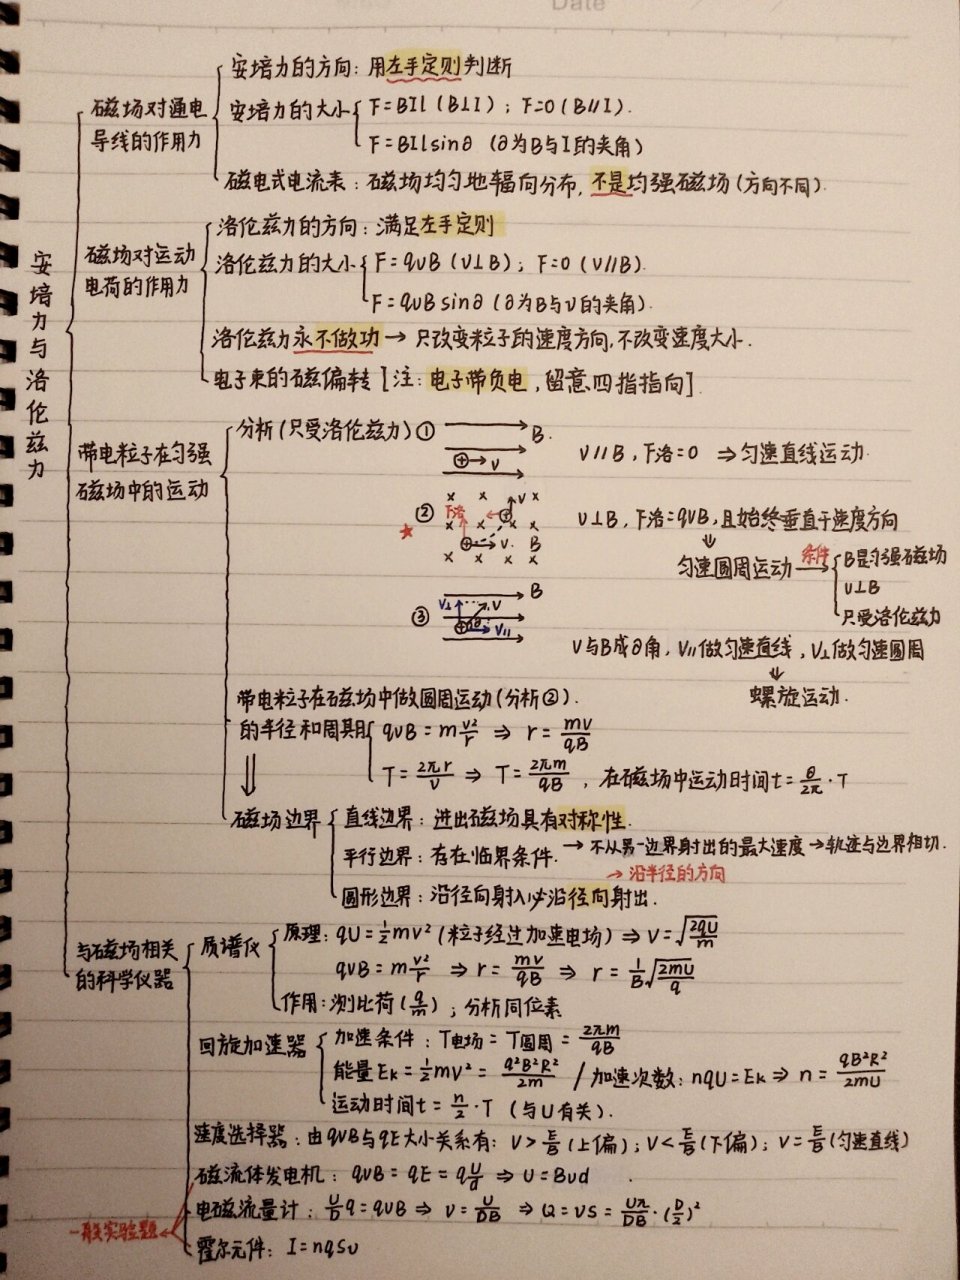 Date
安培力与洛伦兹力
磁场对通电
导线的作用力
安培力的方向：用左手定则判断
安培力的大小
F=BIl (B⊥I)；F=0 (B∥I).
F=BIlsin∂ (∂为B与I的夹角)
磁电式电流表：磁场均匀地辐向分布，不是均强磁场(方向不同).
磁场对运动
电荷的作用力
洛伦兹力的方向：满足左手定则
洛伦兹力的大小
F=qvB (v⊥B)；F=0 (v∥B).
F=qvBsin∂ (∂为B与v的夹角).
洛伦兹力永不做功→只改变粒子的速度方向,不改变速度大小.
电子束的磁偏转[注：电子带负电，留意四指指向].
带电粒子在匀强
磁场中的运动
分析(只受洛伦兹力)① B.
⊕→v
v∥B, F洛=0 ⇒匀速直线运动.
② F洛 v
v. B
★
v⊥B, F洛=qvB, 且始终垂直于速度方向
⇓
匀速圆周运动 条件→
B是匀强磁场
v⊥B
只受洛伦兹力
③ v⊥ v B
∂ v∥
v与B成∂角, v∥做匀速直线, v⊥做匀速圆周
⇓
螺旋运动.
带电粒子在磁场中做圆周运动(分析②).
的半径和周期
qvB=m v²/r ⇒ r= mv/qB
T= 2πr/v ⇒ T= 2πm/qB , 在磁场中运动时间t= θ/2π ·T
⇓
磁场边界
直线边界：进出磁场具有对称性.
平行边界：存在临界条件. →不从另一边界射出的最大速度→轨迹与边界相切.
→沿半径的方向
圆形边界：沿径向射入必沿径向射出.
与磁场相关
的科学仪器
质谱仪
原理：qU=½mv² (粒子经过加速电场) ⇒ v=√(2qU/m)
qvB=m v²/r ⇒ r= mv/qB ⇒ r= 1/B √(2mU/q)
作用：测比荷(q/m)；分析同位素
回旋加速器
加速条件：T电场=T圆周= 2πm/qB
能量Eₖ=½mv²= q²B²R²/2m / 加速次数：nqU=Eₖ⇒ n= qB²R²/2mU
运动时间t= n/2 ·T (与U有关).
速度选择器：由qvB与qE大小关系有：v> E/B (上偏)；v< E/B (下偏)；v= E/B (匀速直线)
磁流体发电机：qvB=qE=q U/d ⇒ U=Bvd .
电磁流量计：U/D q=qvB ⇒ v= U/DB ⇒ Q=vS= Uπ/DB ·(D/2)²
一般实验题
霍尔元件：I=nqSv